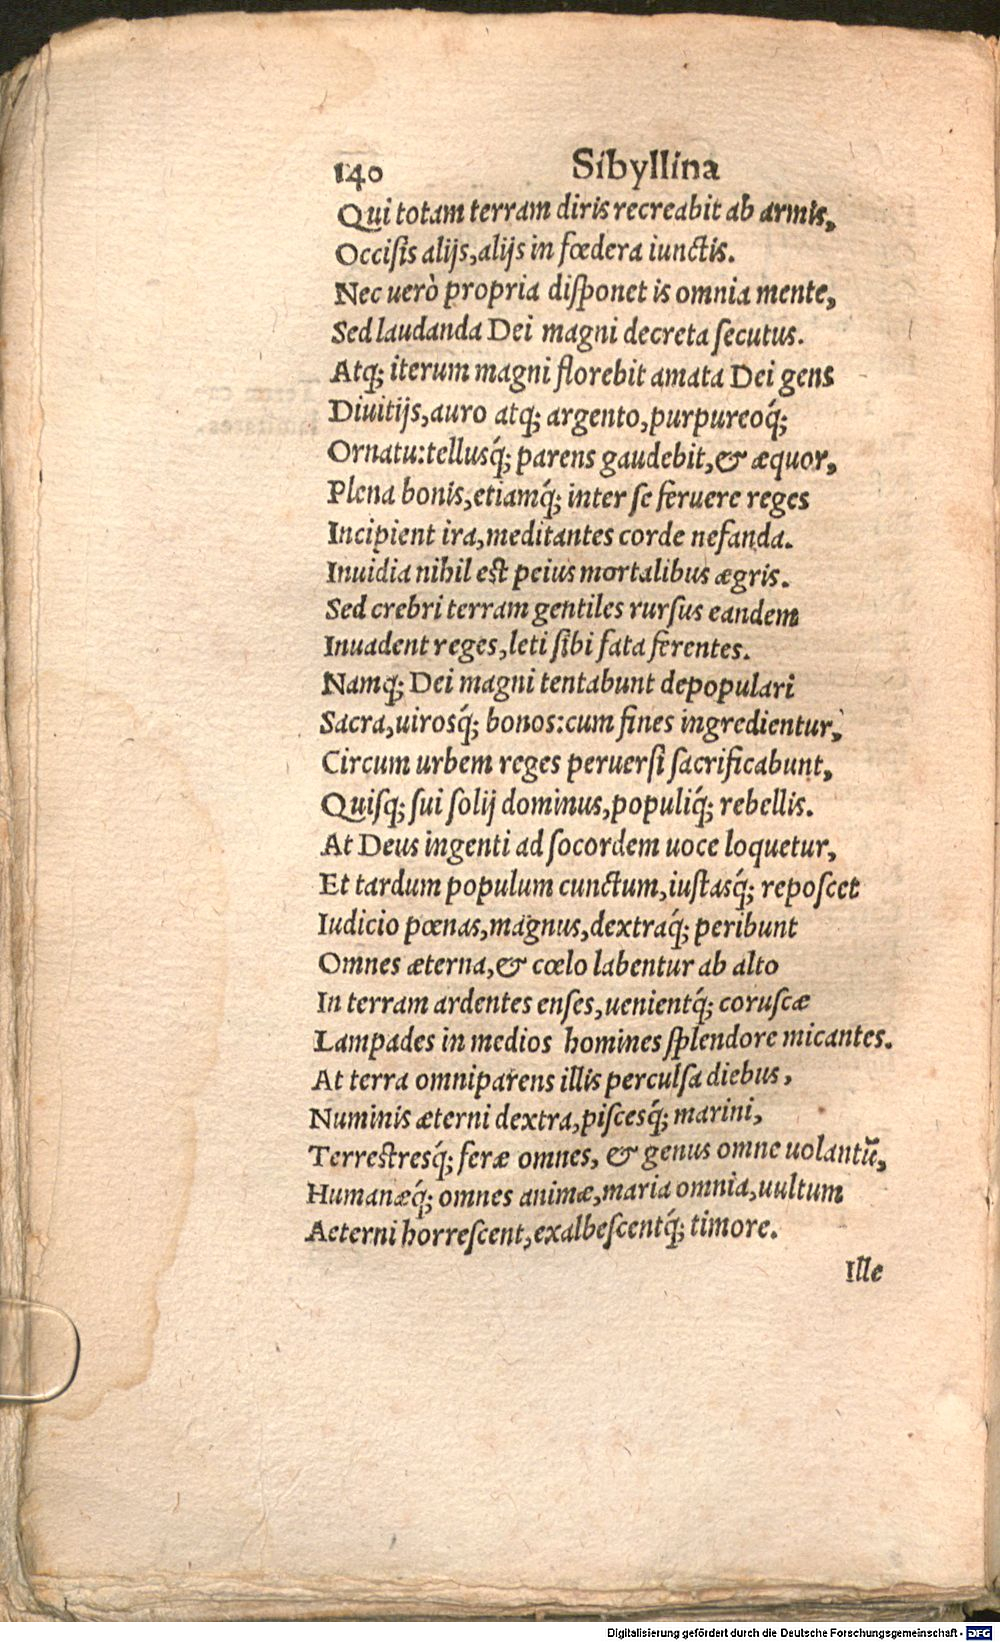 140 Sibyllina
Qui totam terram diris recreabit ab armis,
Occiſis alijs,alijs in fœdera iunctis.
Nec uerò propria diſponet is omnia mente,
Sed laudanda Dei magni decreta ſecutus.
Atq; iterum magni florebit amata Dei gens
Diuitijs,auro atq; argento,purpureoq́;
Ornatu:tellusq́; parens gaudebit,& æquor,
Plena bonis,etiamq́; inter ſe feruere reges
Incipient ira,meditantes corde nefanda.
Inuidia nihil est peius mortalibus ægris.
Sed crebri terram gentiles rurſus eandem
Inuadent reges,leti ſibi fata ferentes.
Namq; Dei magni tentabunt depopulari
Sacra,uirosq́; bonos:cum fines ingredientur,
Circum urbem reges peruerſi ſacrificabunt,
Quiſq; ſui ſolij dominus,populiq́; rebellis.
At Deus ingenti ad ſocordem uoce loquetur,
Et tardum populum cunctum,iuſtasq́; repoſcet
Iudicio pœnas,magnus,dextraq́; peribunt
Omnes æterna,& cœlo labentur ab alto
In terram ardentes enſes,uenientq́; coruſcæ
Lampades in medios homines ſplendore micantes.
At terra omniparens illis perculſa diebus,
Numinis æterni dextra,piſcesq́; marini,
Terrestresq́; feræ omnes, & genus omne uolantū,
Humanæq́; omnes animæ,maria omnia,uultum
Aeterni horreſcent,exalbeſcentq́; timore.
Ille
Digitalisierung gefördert durch die Deutsche Forschungsgemeinschaft - DFG